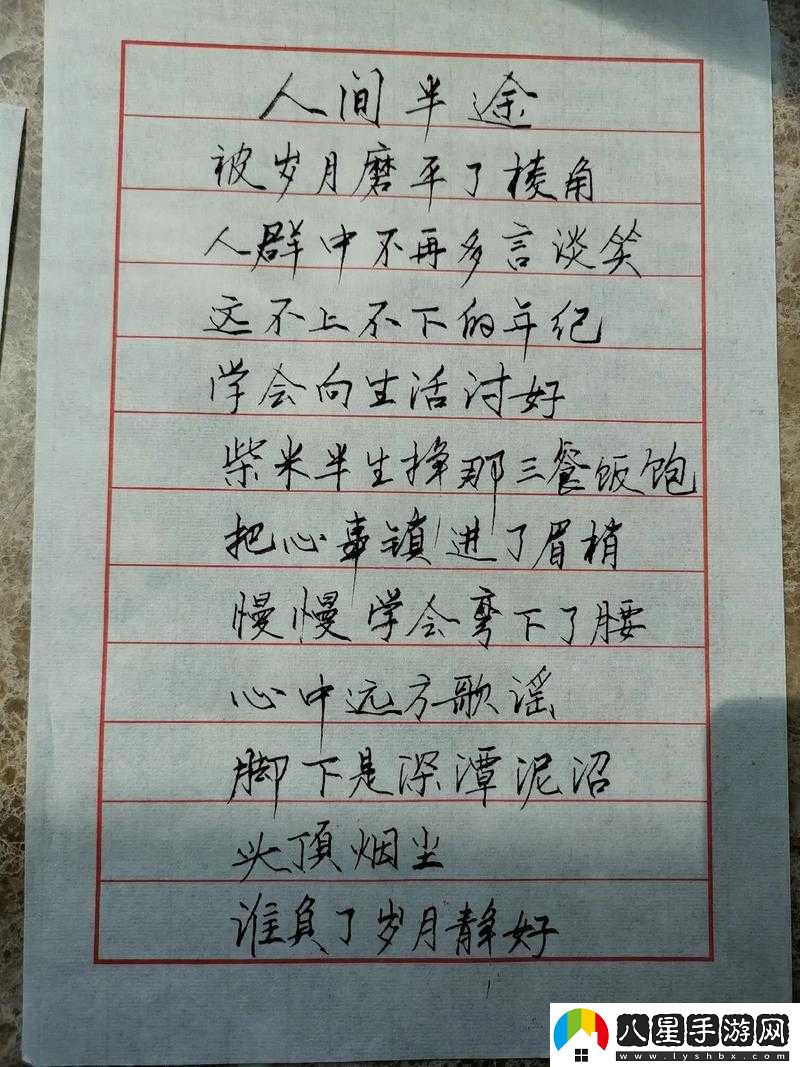 人间半途
被岁月磨平了棱角
人群中不再多言谈笑
这不上不下的年纪
学会向生活讨好
柴米半生挣那三餐饭饱
把心事镇进了眉梢
慢慢学会弯下了腰
心中远方歌谣
脚下是深潭泥沼
头顶烟尘
谁负了岁月静好
八星手游网
www.lyshbx.com